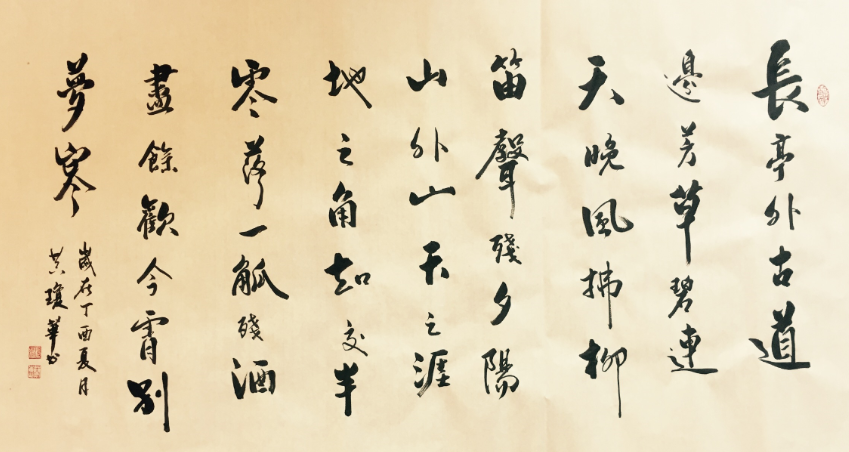 長亭外古道
邊芳草碧連
天晚風拂柳
笛聲殘夕陽
山外山天之涯
地之角知交半
零落一觚殘酒
盡餘歡今宵別
夢寒
歲在丁酉夏月
瓊華书